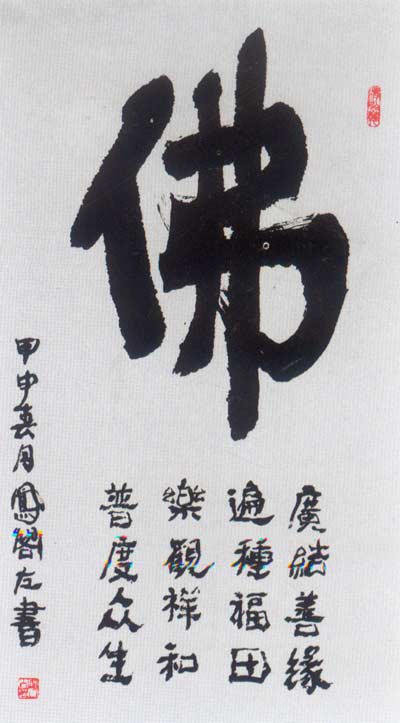 佛
廣結善缘
遍種福田
樂觀祥和
普度众生
甲申春月鳳閣左書